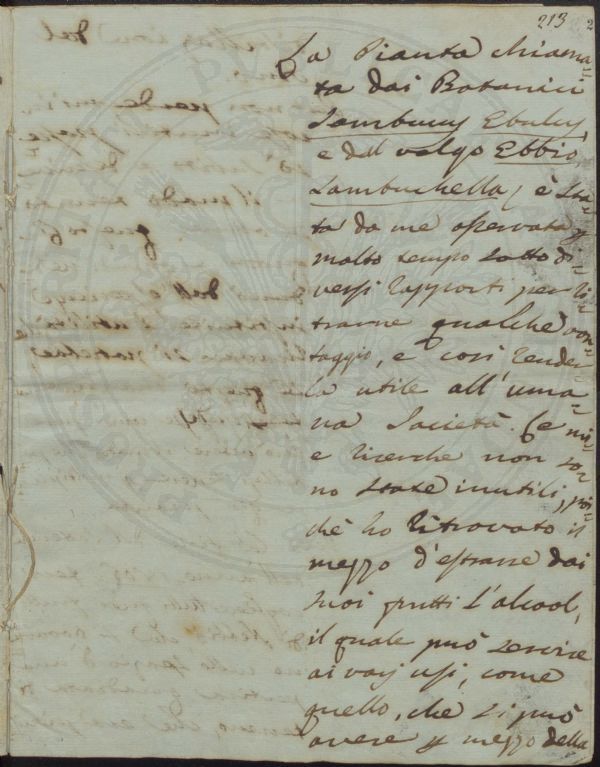 213
La Pianta chiama=
ta dai Botanici
Sambucus Ebulus,
e dal volgo Ebbio
Sambuchella, è sta=
ta da me osservata p
molto tempo sotto di=
versi rapporti per ri=
trarne qualche van=
taggio, e così render=
la utile all'uma=
na Società. Le mi=
e ricerche non so=
no state inutili, poi=
chè ho ritrovato il
mezzo d'estrarre dai
suoi frutti l'alcool,
il quale può servire
ai varj usi, come
quello, che si può
avere p mezzo della